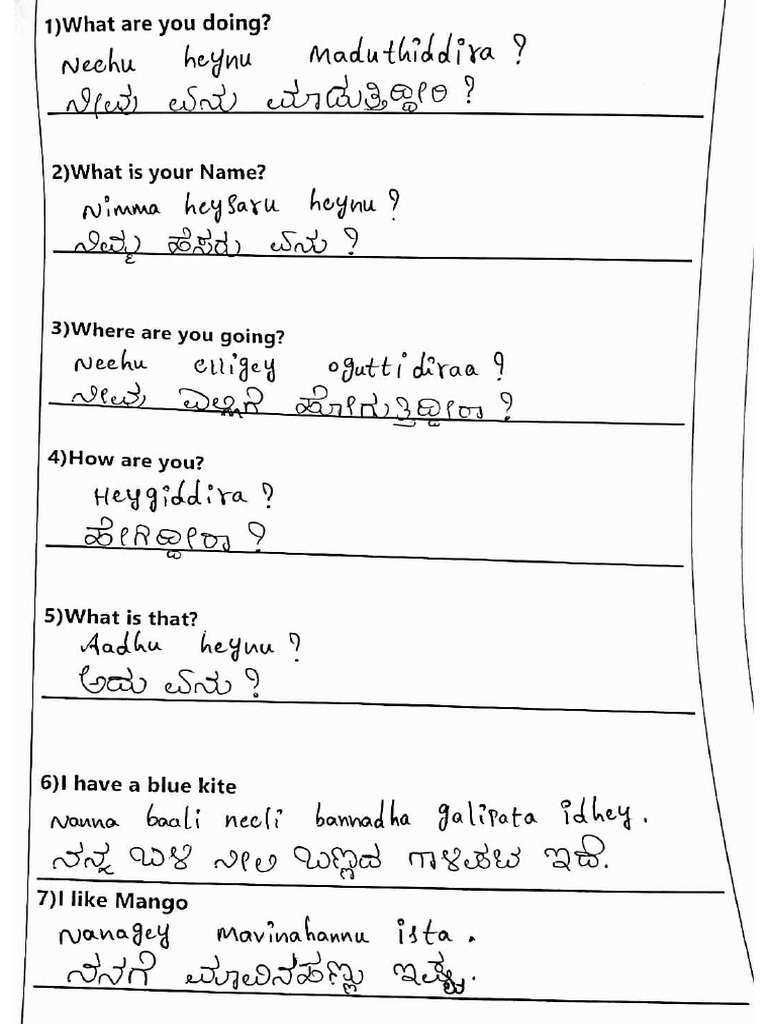 1)What are you doing?
Neehu heynu maduthiddira ?
ನೀವು ಏನು ಮಾಡುತ್ತಿದ್ದೀರಿ ?
2)What is your Name?
Nimma heysaru heynu ?
ನಿಮ್ಮ ಹೆಸರು ಏನು ?
3)Where are you going?
Neehu elligey oguttidiraa ?
ನೀವು ಎಲ್ಲಿಗೆ ಹೋಗುತ್ತಿದ್ದೀರಾ ?
4)How are you?
Heygiddira ?
ಹೇಗಿದ್ದೀರಾ ?
5)What is that?
Aadhu heynu ?
ಅದು ಏನು ?
6)I have a blue kite
Nanna baali neeli bannadha galipata idhey .
ನನ್ನ ಬಳಿ ನೀಲಿ ಬಣ್ಣದ ಗಾಳಿಪಟ ಇದೆ.
7)I like Mango
Nanagey mavinahannu ista .
ನನಗೆ ಮಾವಿನಹಣ್ಣು ಇಷ್ಟ.